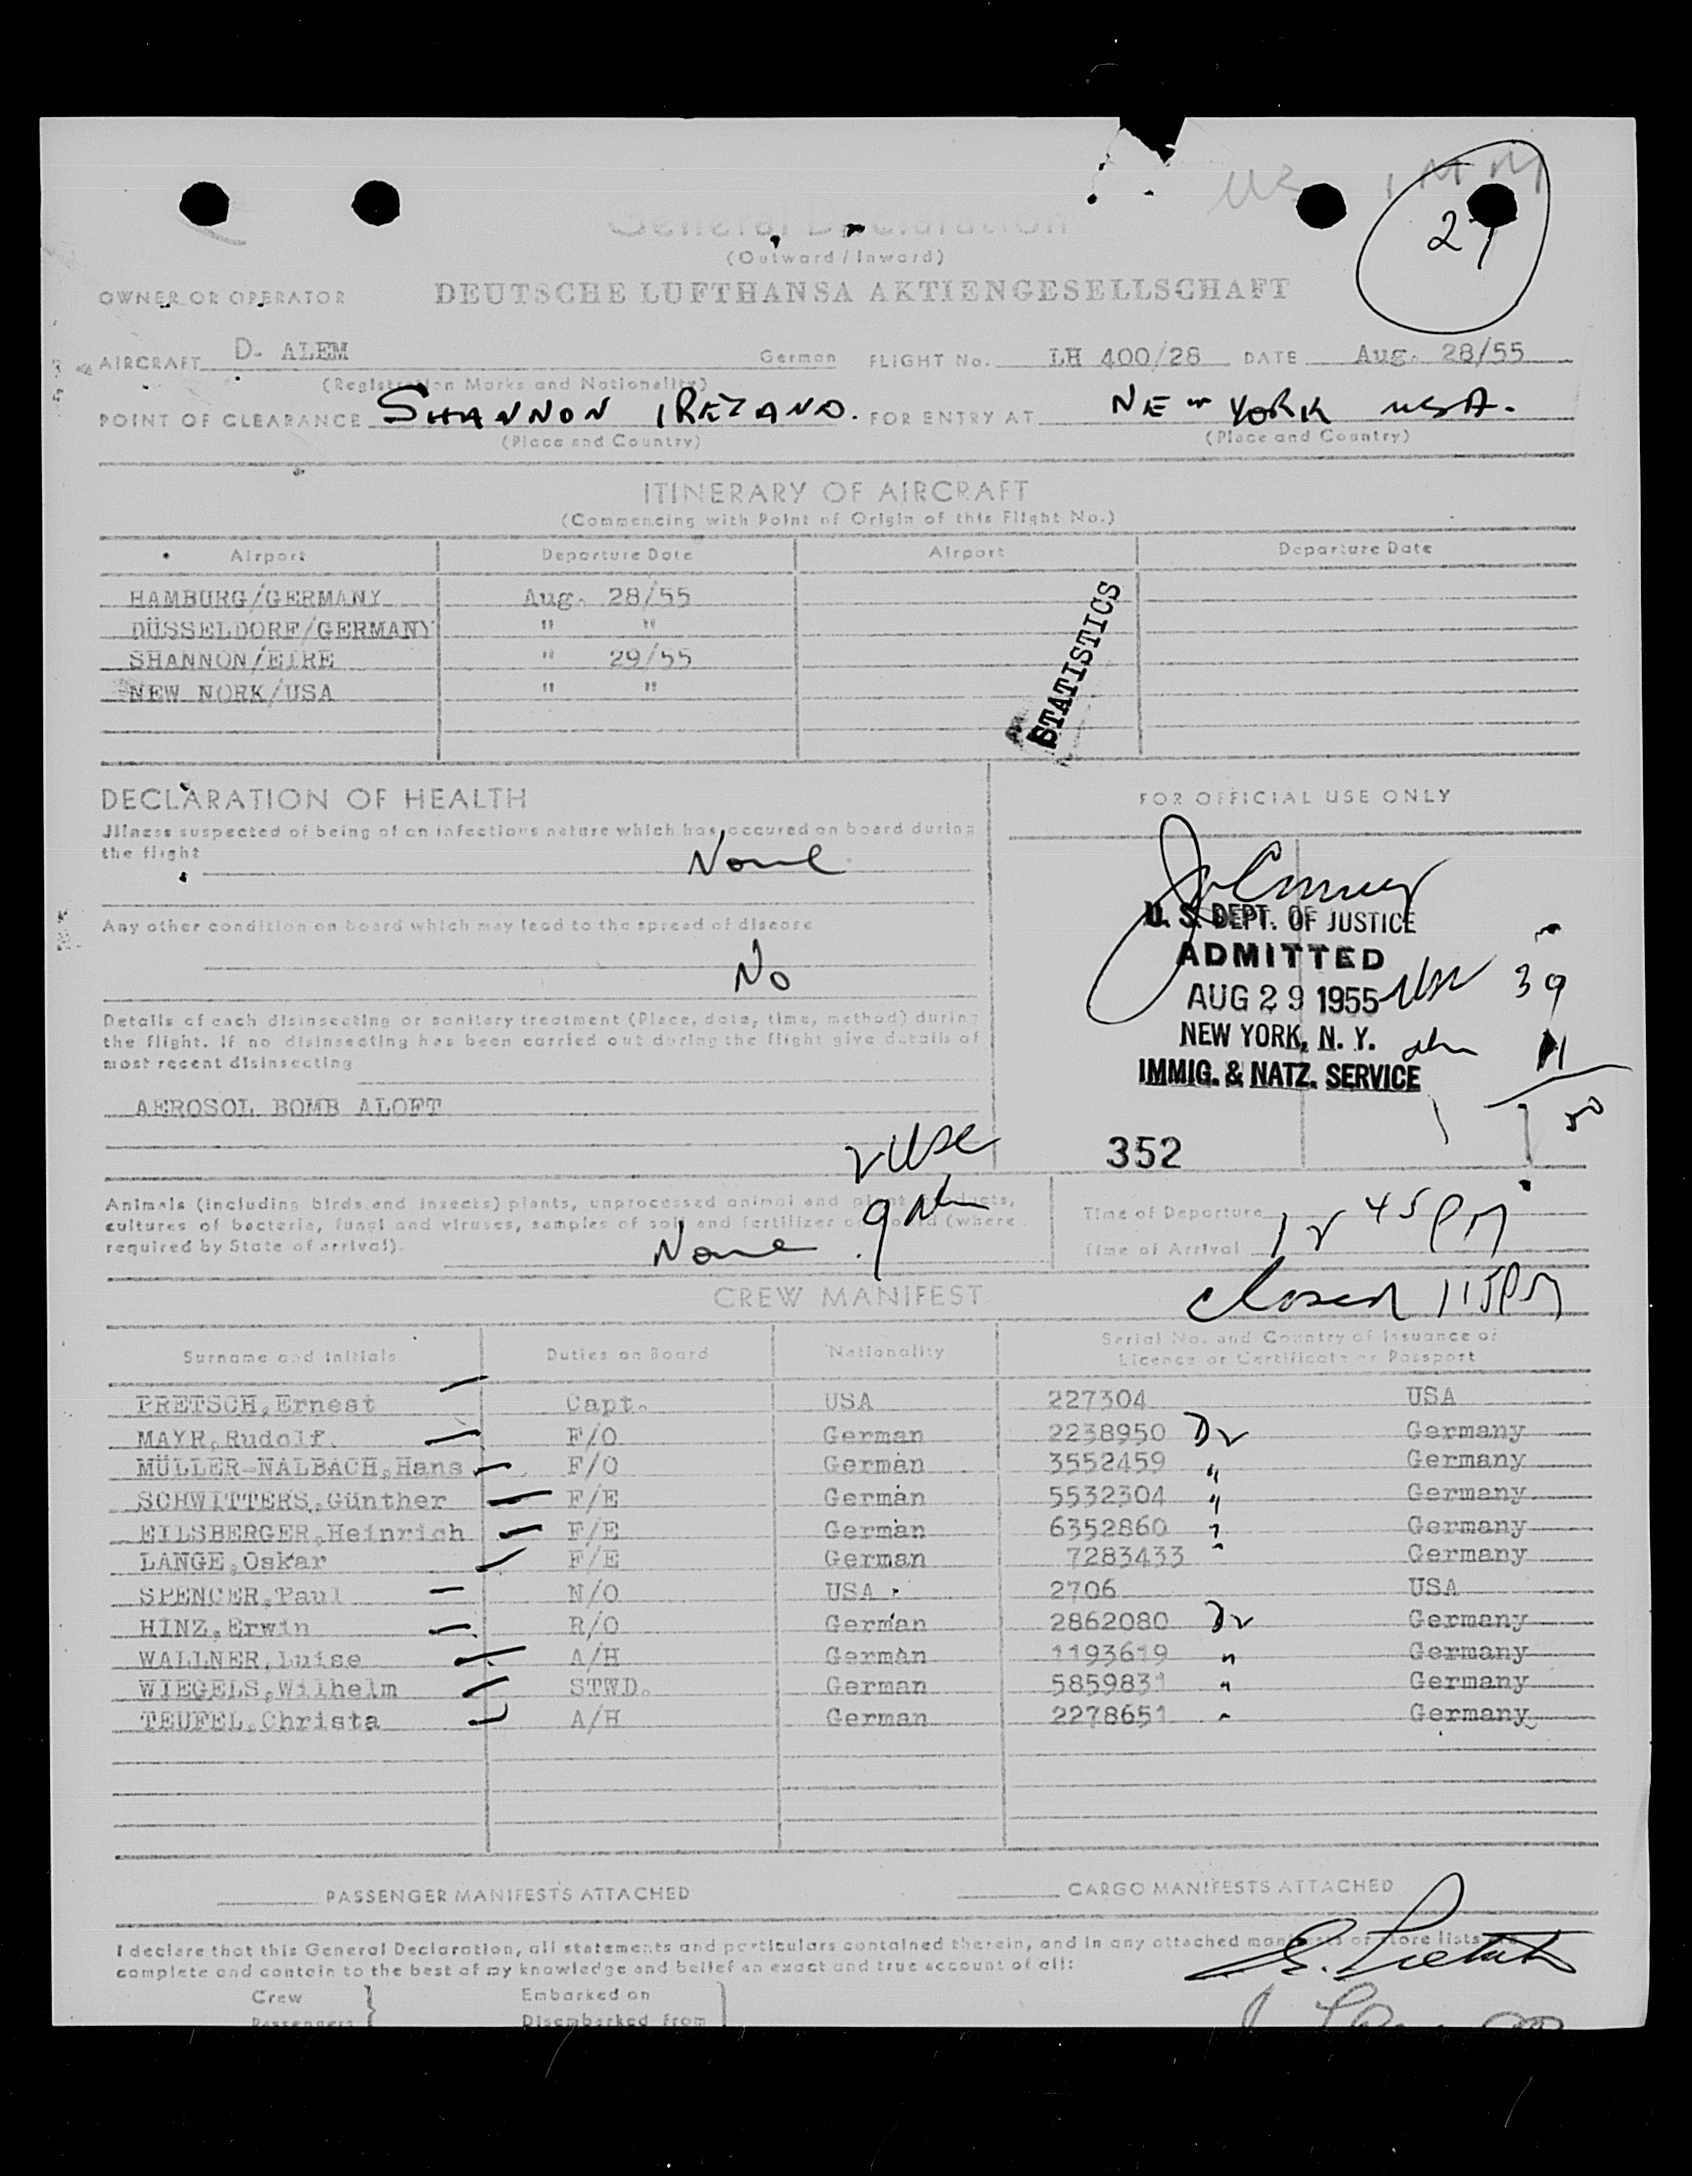 US IMM
29
General Declaration
(Outward / Inward)
OWNER OR OPERATOR DEUTSCHE LUFTHANSA AKTIENGESELLSCHAFT
AIRCRAFT D- ALEM German FLIGHT No. LH 400/28 DATE Aug. 28/55
(Registration Marks and Nationality)
POINT OF CLEARANCE SHANNON IRELAND. FOR ENTRY AT NEW YORK USA.
(Place and Country) (Place and Country)
ITINERARY OF AIRCRAFT
(Commencing with Point of Origin of this Flight No.)
Airport Departure Date Airport Departure Date
HAMBURG/GERMANY Aug. 28/55
DÜSSELDORF/GERMANY " "
SHANNON/EIRE " 29/55
NEW NORK/USA " "
STATISTICS
DECLARATION OF HEALTH
FOR OFFICIAL USE ONLY
Illness suspected of being of an infectious nature which has occured on board during
the flight None
Any other condition on board which may lead to the spread of disease
No
U. S. DEPT. OF JUSTICE
ADMITTED
AUG 29 1955 39
NEW YORK, N. Y. 11
IMMIG. & NATZ. SERVICE
50
352
Details of each disinsecting or sanitary treatment (Place, date, time, method) during
the flight. If no disinsecting has been carried out during the flight give details of
most recent disinsecting
AEROSOL BOMB ALOFT
Animals (including birds and insects) plants, unprocessed animal and plant products,
cultures of bacteria, fungi and viruses, samples of soil and fertilizer on board (where
required by State of arrival). None
Time of Departure
Time of Arrival 12 45 PM
closed 115PM
CREW MANIFEST
Surname and Initials Duties on Board Nationality Serial No. and Country of Issuance of
Licence or Certificate or Passport
PRETSCH, Ernest Capt. USA 227304 USA
MAYR, Rudolf. F/O German 2238950 Dr Germany
MÜLLER-NALBACH, Hans F/O German 3552459 " Germany
SCHWITTERS, Günther F/E German 5532304 " Germany
EILSBERGER, Heinrich F/E German 6352860 " Germany
LANGE, Oskar F/E German 7283433 " Germany
SPENCER, Paul N/O USA 2706 USA
HINZ, Erwin R/O German 2862080 Dr Germany
WALLNER, Luise A/H German 1193619 " Germany
WIEGELS, Wilhelm STWD. German 5859831 " Germany
TEUFEL, Christa A/H German 2278651 " Germany
PASSENGER MANIFESTS ATTACHED CARGO MANIFESTS ATTACHED
I declare that this General Declaration, all statements and particulars contained therein, and in any attached manifests of store lists are
complete and contain to the best of my knowledge and belief an exact and true account of all:
Crew Embarked on
Passengers Disembarked from